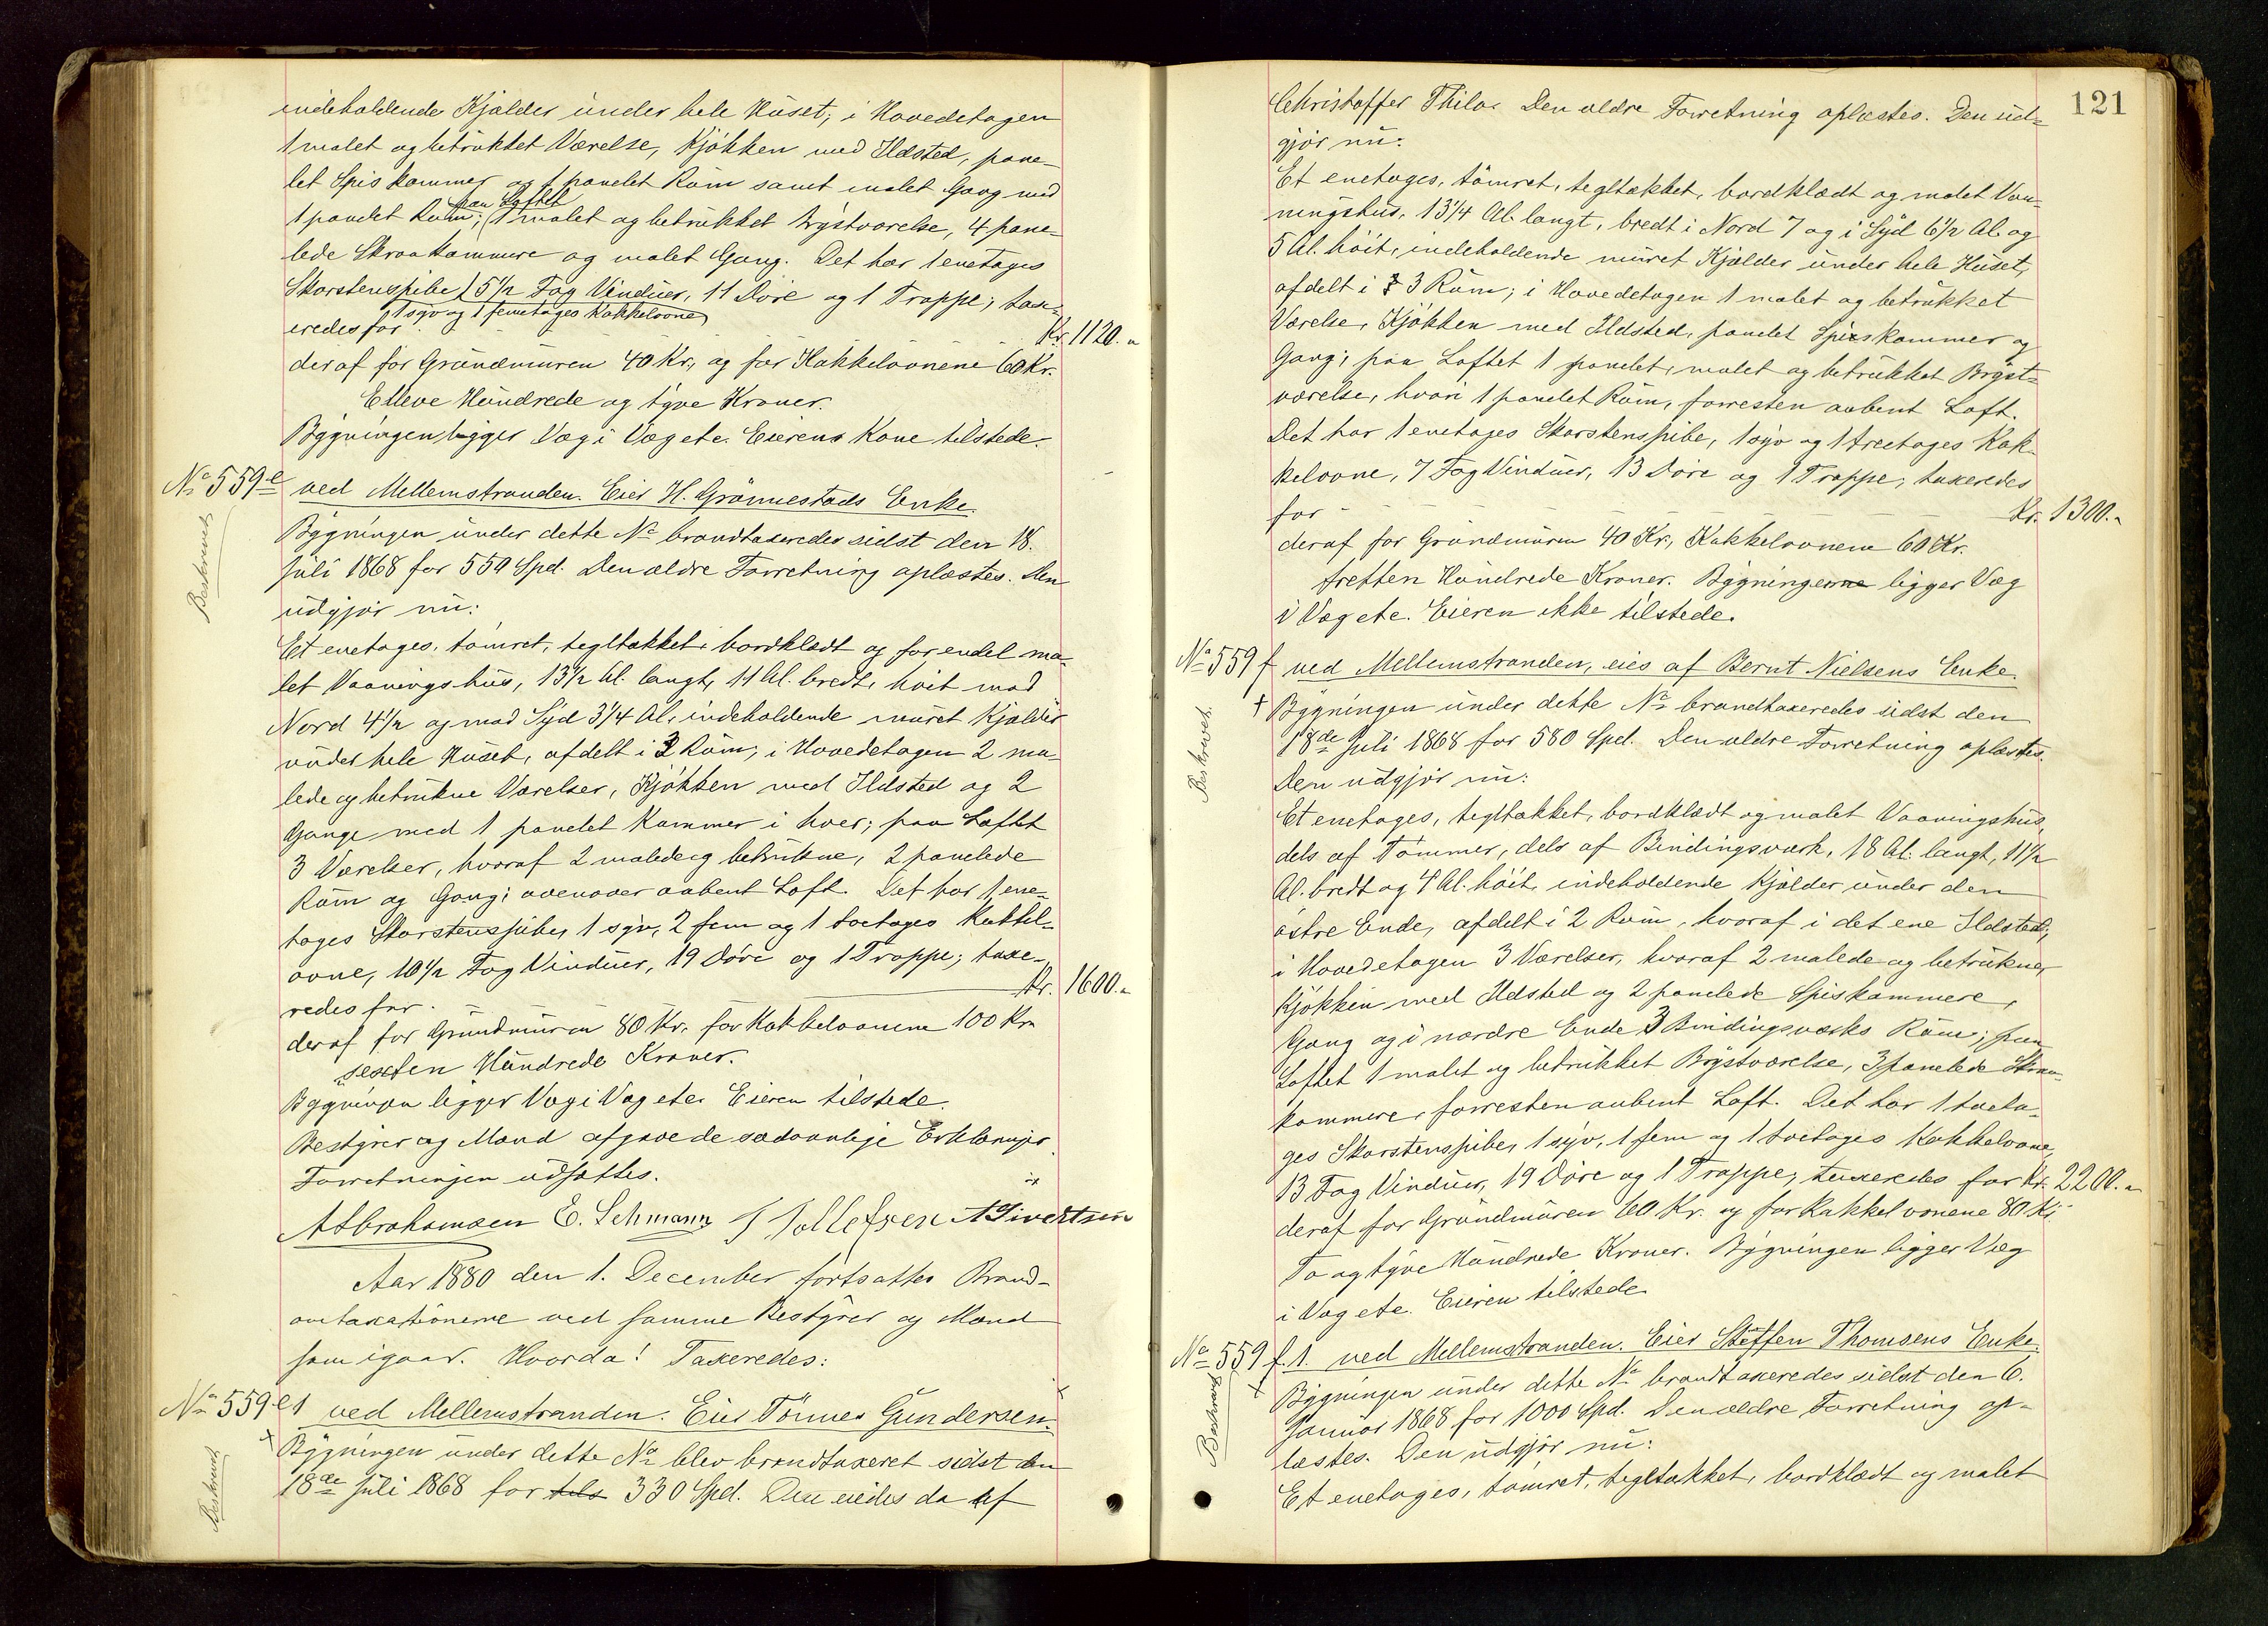 indeholdende Kjælder under hele Huset; i Hovedetagen
1 malet og betrukket Værelse, Kjøkken med Ildsted, pane-
let Spiskammer og 1 panelet Rum samt malet Gang med
paa Loftet
1 panelet Rum; 1 malet og betrukket Brystværelse, 4 pane-
lede Skraakammere og malet Gang. Det har 1 enetages
Skorstenspibe, 5½ Fag Vinduer, 11 Døre og 1 Trappe; tax-
1 syv og 1 femetages Kakkelovne
eredes for Kr. 1120.-
deraf for Grundmuren 40 Kr., og for Kakkelovnene 60 Kr.
Elleve Hundrede og tyve Kroner.
Bygningen ligger Væg i Væg etc. Eierens Kone tilstede.
No 559 e ved Mellemstranden. Eier H. Grønnestads Enke.
Beskrevet
Bygningen under dette No brandtaxeredes sidst den 18.
Juli 1868 for 550 Spd. Den ældre Forretning oplæstes. Den
udgjør nu:
Et enetages, tømret, tegltækket, bordklædt og for endel ma-
let Vaaningshus, 13½ Al. langt, 11 Al. bredt, høit mod
Nord 4½ og mod Syd 3¼ Al. indeholdende muret Kjælder
under hele Huset, afdelt i 3 Rum; i Hovedetagen 2 ma-
lede og betrukne Værelser, Kjøkken med Ildsted og 2
Gange med 1 panelet Kammer i hver; paa Loftet
3 Værelser, hvoraf 2 malede og betrukne, 2 panelede
Rum og Gang; ovenover aabent Loft. Det har 1 ene-
tages Skorstenspibe, 1 syv, 2 fem og 1 toetages Kakkel-
ovne, 10½ Fag Vinduer, 19 Døre og 1 Trappe; taxe-
redes for Kr. 1600.-
deraf for Grundmuren 80 Kr. for Kakkelovnene 100 Kr.
sexten Hundrede Kroner.
Bygningen ligger Væg i Væg etc. Eieren tilstede.
Bestyrer og Mænd afgave de sædvanlige Erklæringer.
Forretningen udsattes.
A Abrahamsen E. Lehmann T Tollefsen A Sivertsen
Aar 1880 den 1. December fortsattes Brand-
omtaxationerne ved samme Bestyrer og Mænd
som igaar. Hvorda! Taxeredes:
No 559 e1 ved Mellemstranden. Eier Tønnes Gundersen.
Beskrevet
Bygningen under dette No blev brandtaxeret sidst den
18de Juli 1868 for 330 Spd. Den eiedes da af
121
Christoffer Thilo. Den ældre Forretning oplæstes. Den ud-
gjør nu:
Et enetages, tømret, tegltækket, bordklædt og malet Vaa-
ningshus, 13¼ Al. langt, bredt i Nord 7 og i Syd 6½ Al. og
5 Al. høit, indeholdende muret Kjælder under hele Huset,
afdelt i 3 Rum; i Hovedetagen 1 malet og betrukket
Værelse, Kjøkken med Ildsted, panelet Spiskammer og
Gang; paa Loftet 1 panelet, malet og betrukket Bryst-
værelse, hvori 1 panelet Rum, forresten aabent Loft.
Det har 1 enetages Skorstenspibe, 1 syv og 1 treetages Kak-
kelovne, 7 Fag Vinduer, 13 Døre og 1 Trappe; taxeredes
for Kr. 1300.-
deraf for Grundmuren 40 Kr, Kakkelovnene 60 Kr.
tretten Hundrede Kroner. Bygningerne ligger Væg
i Væg etc. Eieren ikke tilstede.
No 559 f ved Mellemstranden, eies af Bernt Nielsens Enke.
Beskrevet.
Bygningen under dette No brandtaxeredes sidst den
18de Juli 1868 for 580 Spd. Den ældre Forretning oplæstes.
Den udgjør nu:
Et enetages, tegltækket, bordklædt og malet Vaaningshus,
dels af Tømmer, dels af Bindingsværk, 18 Al. langt, 11½
Al. bredt og 4 Al. høit, indeholdende Kjælder under den
østre Ende, afdelt i 2 Rum, hvoraf i det ene Ildsted;
i Hovedetagen 3 Værelser, hvoraf 2 malede og betrukne,
Kjøkken med Ildsted og 2 panelede Spiskammere,
Gang og i nordre Ende 3 Bindingsværks Rum; paa
Loftet 1 malet og betrukket Brystværelse, 3 panelede Skraa-
kammere, forresten aabent Loft. Det har 1 toeta-
ges Skorstenspibe, 1 syv, 1 fem og 1 toetages Kakkelovne,
13 Fag Vinduer, 19 Døre og 1 Trappe; taxeredes for Kr. 2200.-
deraf for Grundmuren 60 Kr. og for Kakkelovnene 80 Kr
To og tyve Hundrede Kroner. Bygningen ligger Væg
i Væg etc. Eieren tilstede.
No 559 f.1. ved Mellemstranden. Eier Steffen Thomsens Enke.
Beskrevet
Bygningen under dette No brandtaxeredes sidst den 6.
Januar 1868 for 1000 Spd. Den ældre Forretning op-
læstes. Den udgjør nu:
Et enetages, tømret, tegltækket, bordklædt og malet